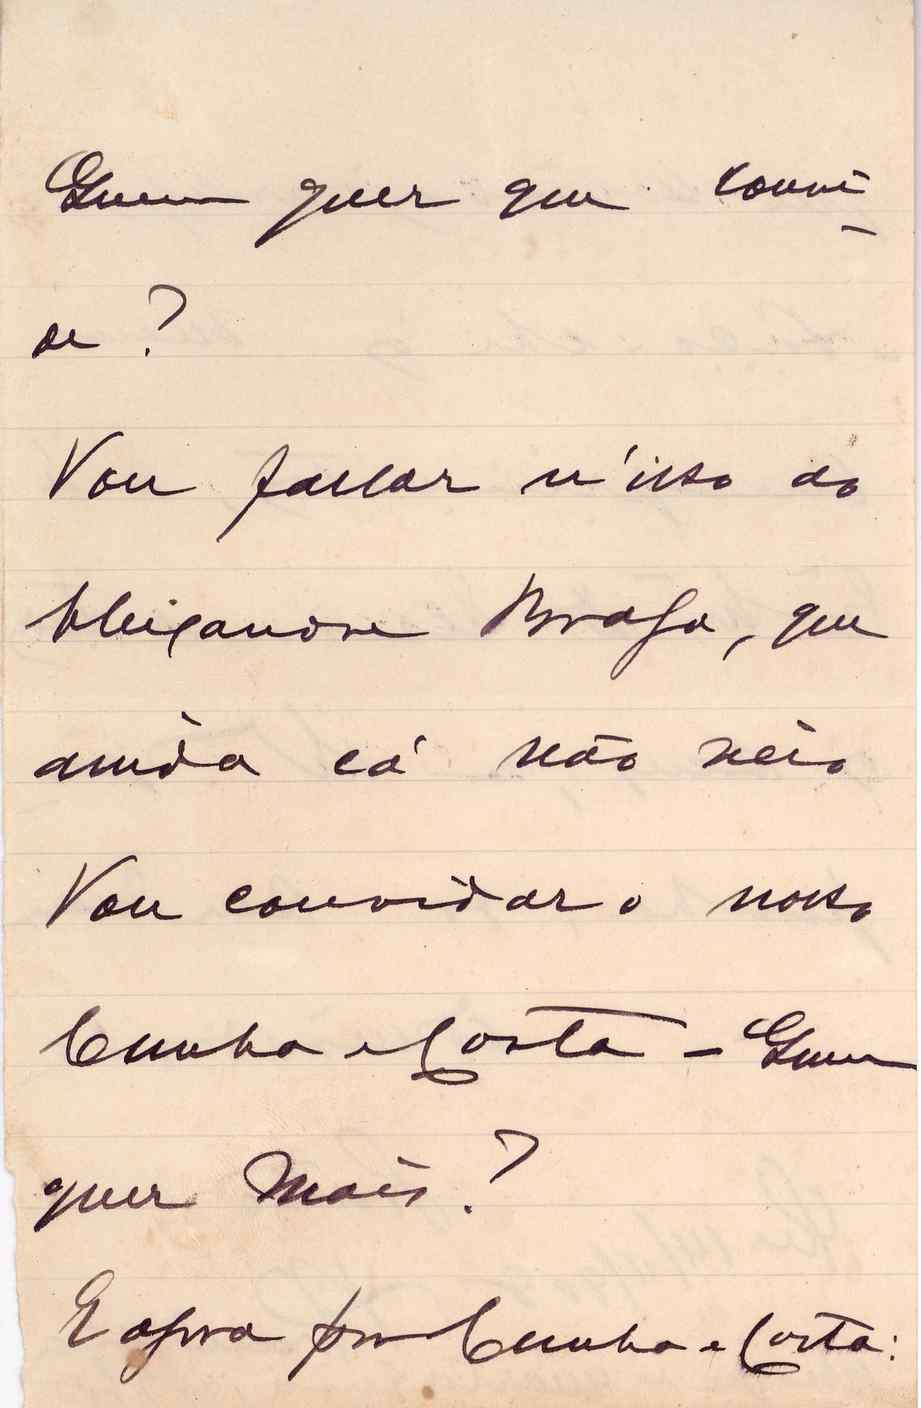 Quem quer que convi-
de?
Vou fallar n'isso ao
Alexandre Braga, que
ainda cá não veio
Vou convidar o nosso
Cunha e Costa - Quem
quer mais?
E agora por Cunha e Costa: